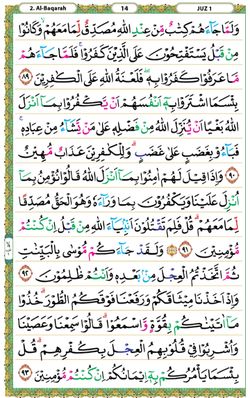 2. Al-Baqarah 14 JUZ 1
وَلَمَّا جَآءَهُمْ كِتٰبٌ مِّنْ عِنْدِ اللّٰهِ مُصَدِّقٌ لِّمَا مَعَهُمْ ۙ وَكَانُوْا
مِنْ قَبْلُ يَسْتَفْتِحُوْنَ عَلَى الَّذِيْنَ كَفَرُوْا ۚ فَلَمَّا جَآءَهُمْ
مَّا عَرَفُوْا كَفَرُوْا بِهٖ ۫ فَلَعْنَةُ اللّٰهِ عَلَى الْكٰفِرِيْنَ ﴿٨٩﴾
بِئْسَمَا اشْتَرَوْا بِهٖۤ اَنْفُسَهُمْ اَنْ يَّكْفُرُوْا بِمَاۤ اَنْزَلَ
اللّٰهُ بَغْيًا اَنْ يُّنَزِّلَ اللّٰهُ مِنْ فَضْلِهٖ عَلٰى مَنْ يَّشَآءُ مِنْ عِبَادِهٖ ۚ
فَبَآءُوْ بِغَضَبٍ عَلٰى غَضَبٍ ؕ وَلِلْكٰفِرِيْنَ عَذَابٌ مُّهِيْنٌ
﴿٩٠﴾ وَاِذَا قِيْلَ لَهُمْ اٰمِنُوْا بِمَاۤ اَنْزَلَ اللّٰهُ قَالُوْا نُؤْمِنُ بِمَاۤ
اُنْزِلَ عَلَيْنَا وَيَكْفُرُوْنَ بِمَا وَرَآءَهٗ ۗ وَهُوَ الْحَقُّ مُصَدِّقًا
لِّمَا مَعَهُمْ ؕ قُلْ فَلِمَ تَقْتُلُوْنَ اَنْۢبِيَآءَ اللّٰهِ مِنْ قَبْلُ اِنْ كُنْتُمْ
مُّؤْمِنِيْنَ ﴿٩١﴾ وَلَقَدْ جَآءَكُمْ مُّوْسٰى بِالْبَيِّنٰتِ
ثُمَّ اتَّخَذْتُمُ الْعِجْلَ مِنْۢ بَعْدِهٖ وَاَنْتُمْ ظٰلِمُوْنَ ﴿٩٢﴾
وَاِذْ اَخَذْنَا مِيْثَاقَكُمْ وَرَفَعْنَا فَوْقَكُمُ الطُّوْرَ ؕ خُذُوْا
مَاۤ اٰتَيْنٰكُمْ بِقُوَّةٍ وَّاسْمَعُوْا ؕ قَالُوْا سَمِعْنَا وَعَصَيْنَا
وَاُشْرِبُوْا فِيْ قُلُوْبِهِمُ الْعِجْلَ بِكُفْرِهِمْ ؕ قُلْ
بِئْسَمَا يَاْمُرُكُمْ بِهٖۤ اِيْمَانُكُمْ اِنْ كُنْتُمْ مُّؤْمِنِيْنَ ﴿٩٣﴾